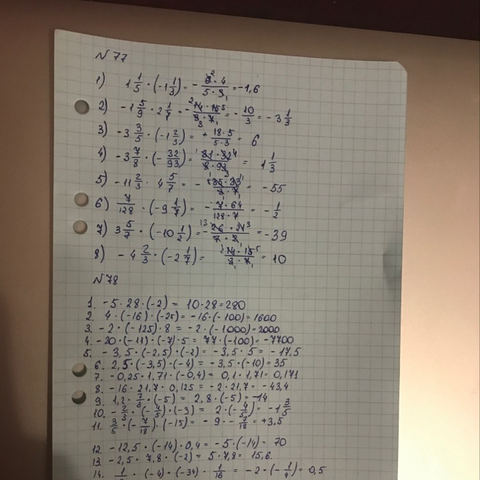 N 77
1) 1 1/5 · (-1 1/3) = - 6² · 4 / 5 · 3₁ = -1,6
2) -1 5/9 · 2 1/7 = - ²14 · 15⁵ / ₃9 · 7₁ = - 10/3 = -3 1/3
3) -3 3/5 · (-1 2/3) = + 18 · 5 / 5 · 3 = 6
4) -3 7/8 · (- 32/93) = ¹31 · 32⁴ / 8 · 93₃ = 1 1/3
5) -11 2/3 · 4 5/7 = - ⁵35 · 33¹¹ / 3 · 7₁ = -55
6) 7/128 · (-9 1/7) = - 7 · 64 / 128 · 7 = - 1/2
7) 3 5/7 · (-10 1/2) = - ¹³26 · 21³ / 7 · 2₁ = -39
8) -4 2/3 · (-2 1/7) = ²14 · 15⁵ / ₁3 · 7₁ = 10
N 78
1. -5 · 28 · (-2) = 10 · 28 = 280
2. 4 · (-16) · (-25) = -16 · (-100) = 1600
3. -2 · (-125) · 8 = -2 · (-1000) = 2000
4. -20 · (-11) · (-7) · 5 = 77 · (-100) = -7700
5. -3,5 · (-2,5) · (-2) = -3,5 · 5 = -17,5
6. 2,5 · (-3,5) · (-4) = -3,5 · (-10) = 35
7. -0,25 · 1,71 · (-0,4) = 0,1 · 1,71 = 0,171
8. -16 · 21,7 · 0,125 = -2 · 21,7 = -43,4
9. 1,2 · 7/3 · (-5) = 2,8 · (-5) = -14
10. · (-3) = 2 · (- 4/5) = -1 3/5
11. 3/5 · (- 7/18) · (-15) = -9 · - 7/18 = +3,5
12. -12,5 · (-14) · 0,4 = -5 · (-14) = 70
13. -2,5 · 7,8 · (-2) = 5 · 7,8 = 15,6
14. · (-4) · (-34) · 1/16 = -2 · (- 1/4) = 0,5